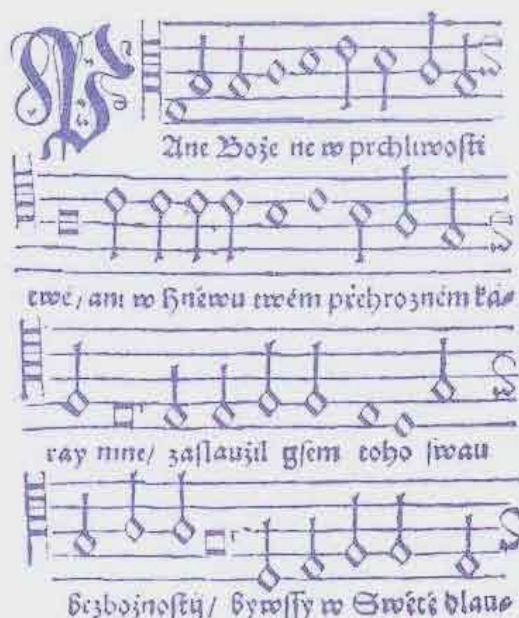 PAne Bože ne w prchliwosti
twé / ani w Hněwu twém přehrozném ká=
ray mne / zaslaužil gsem toho swau
bezbožnostý / bywssy w Swětě dlau=